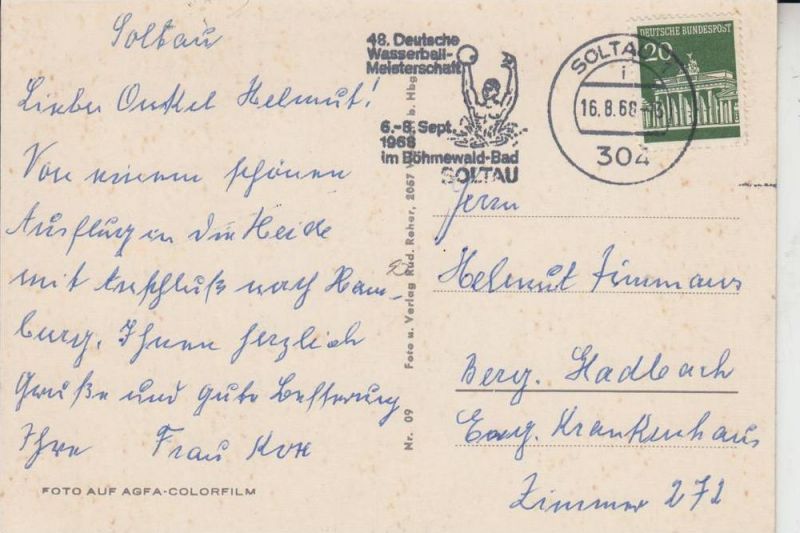 Soltau
Lieber Onkel Helmut!
Von einem schönen
Ausflug in die Heide
mit Anschluß nach Ham-
burg. Ihnen herzlich
Grüße und gute Besserung
Ihre Frau Kox
FOTO AUF AGFA-COLORFILM
Nr. 09 Foto u. Verlag Rud. Reher, 2057 b. Hbg.
48. Deutsche
Wasserball-
Meisterschaft
6.-8. Sept.
1968
im Böhmewald-Bad
SOLTAU
SOLTAU
16.8.68
304
DEUTSCHE BUNDESPOST
20
Herrn
Helmut Zimmans
Berg. Gladbach
Evg. Krankenhaus
Zimmer 272